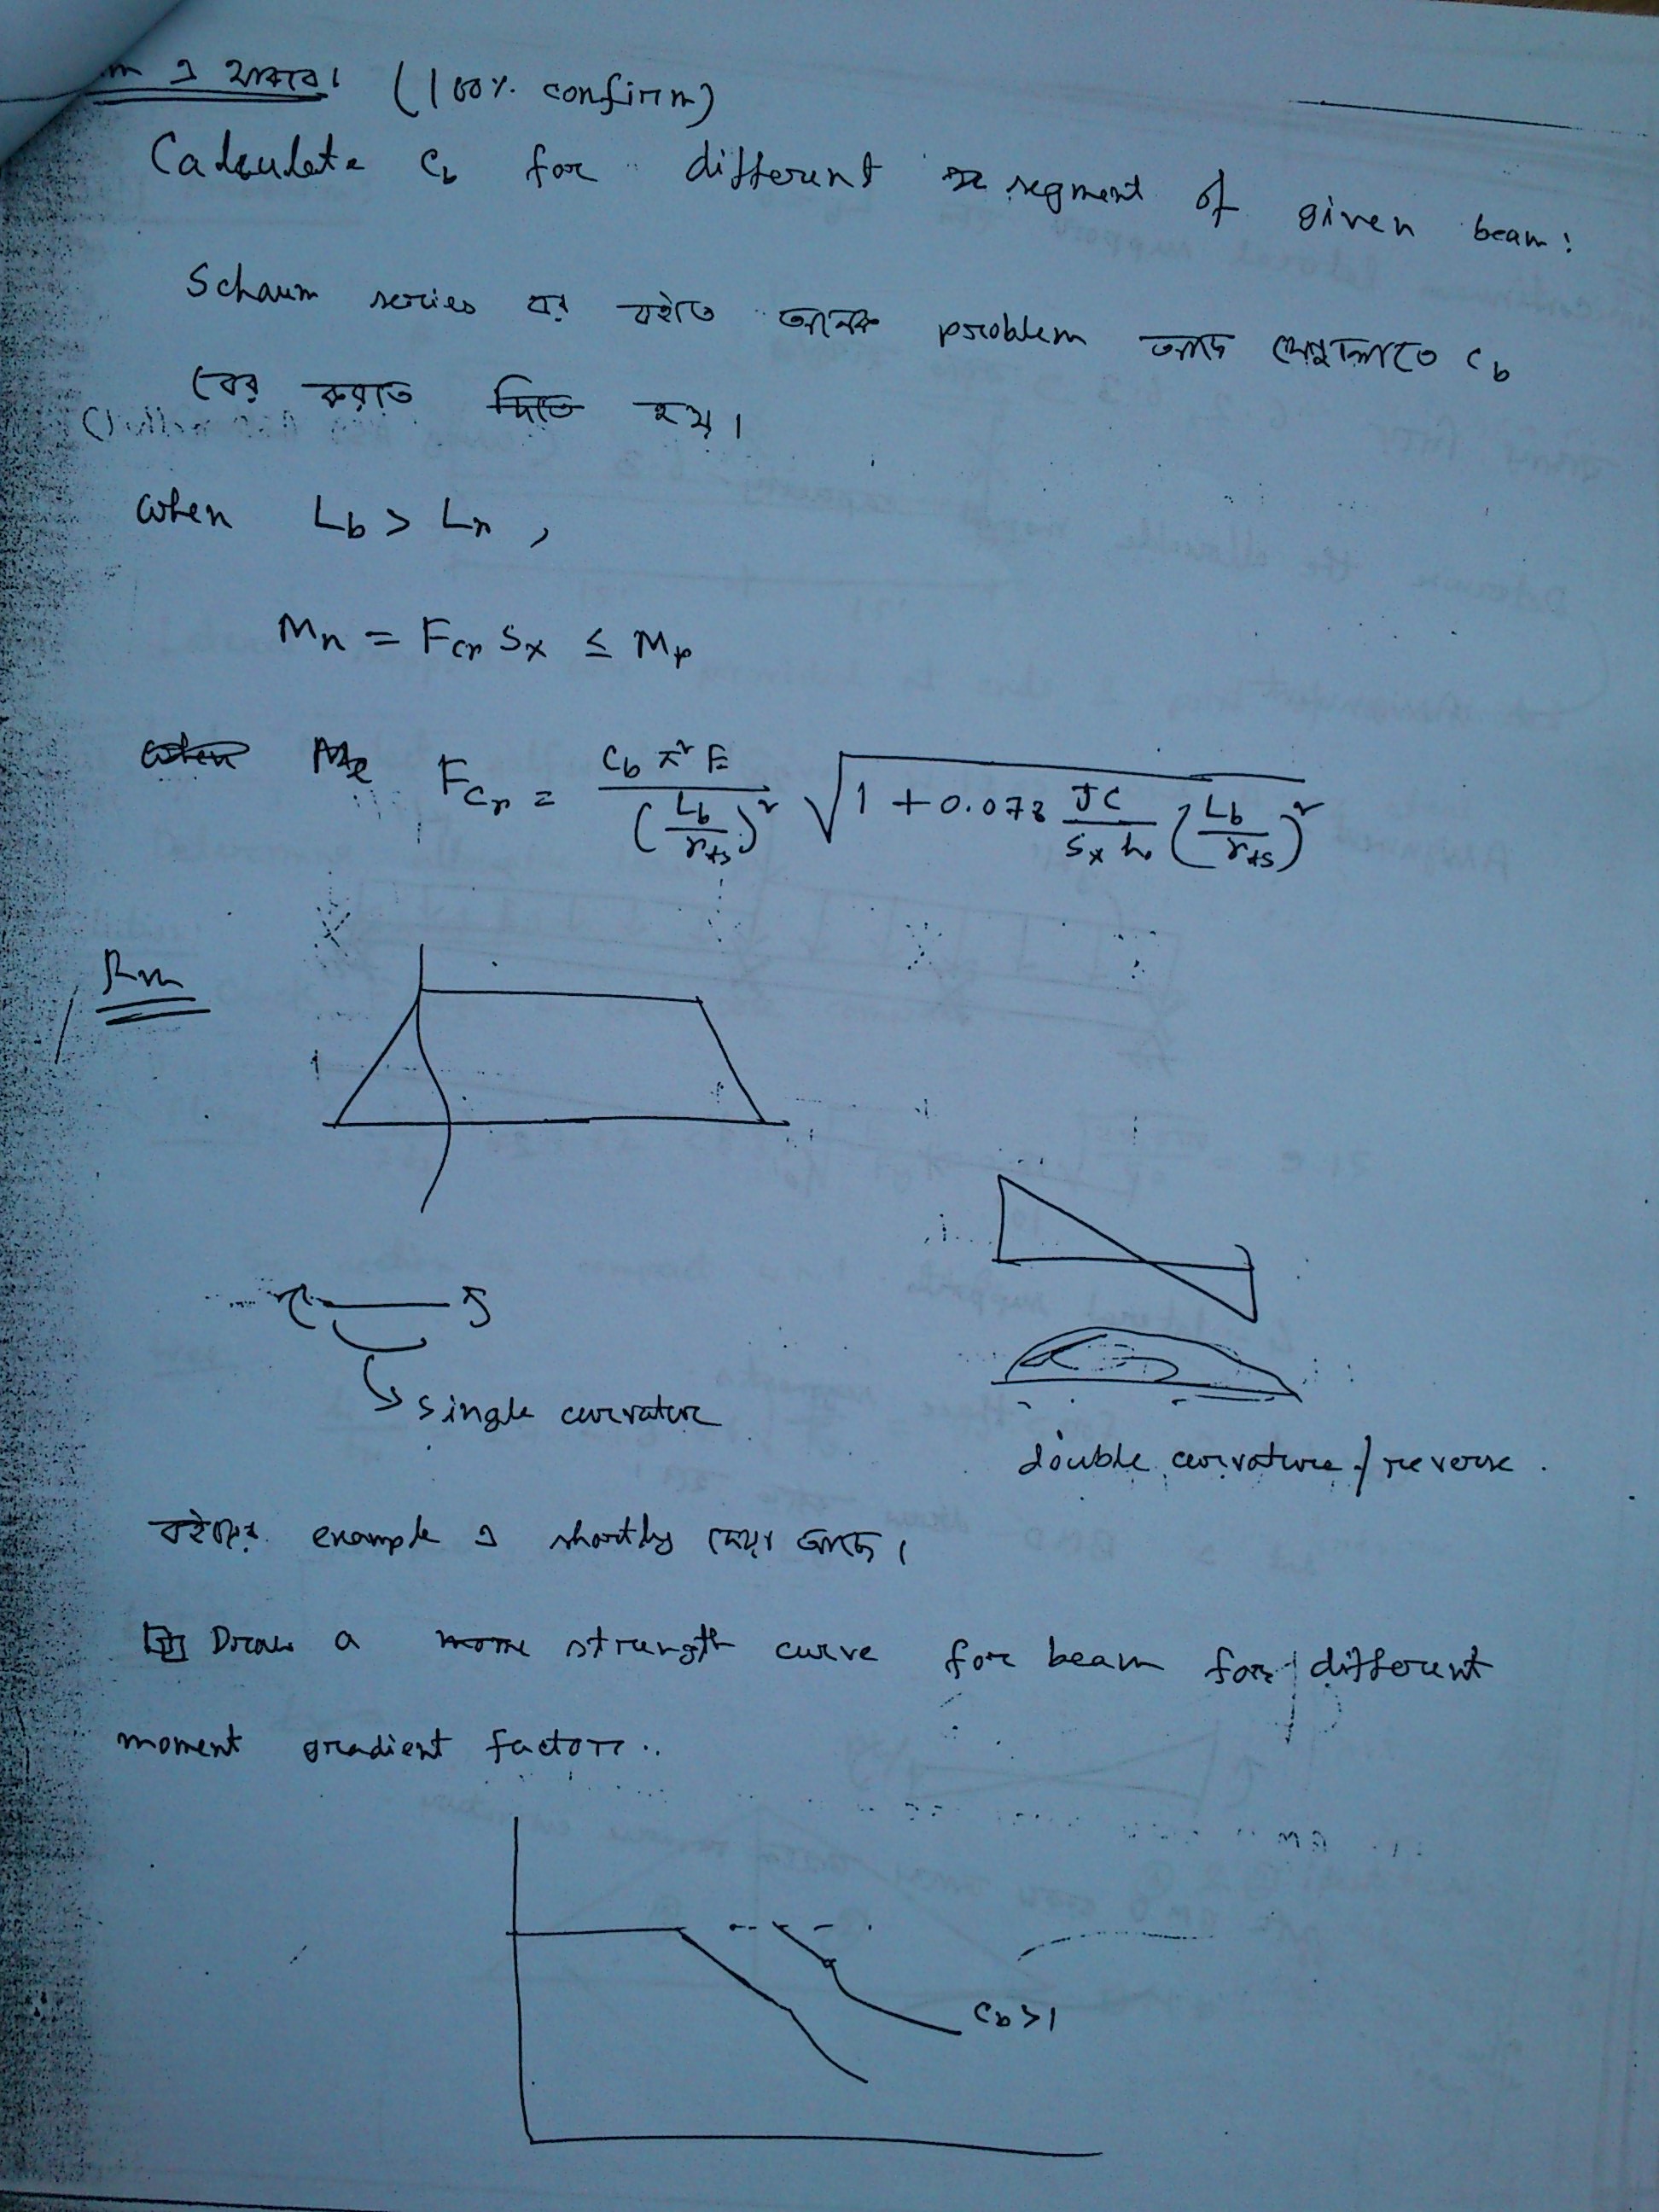 m এ থাকবে। (100% confirm)
Calculate Cb for different segment of given beam:
Schaum series এর বইতে অনেক problem আছে যেগুলোতে Cb
বের করতে দিতে হয়।
when Lb > Lr ,
Mn = Fcr Sx ≤ Mp
when Fcr = Cb π² E / (Lb/rts)² √(1 + 0.078 JC/(Sx ho) (Lb/rts)²)
Rm
single curvature
double curvature / reverse .
বইয়ের example এ shortly দেয়া আছে।
Draw a strength curve for beam for different
moment gradient factors.
Cb>1